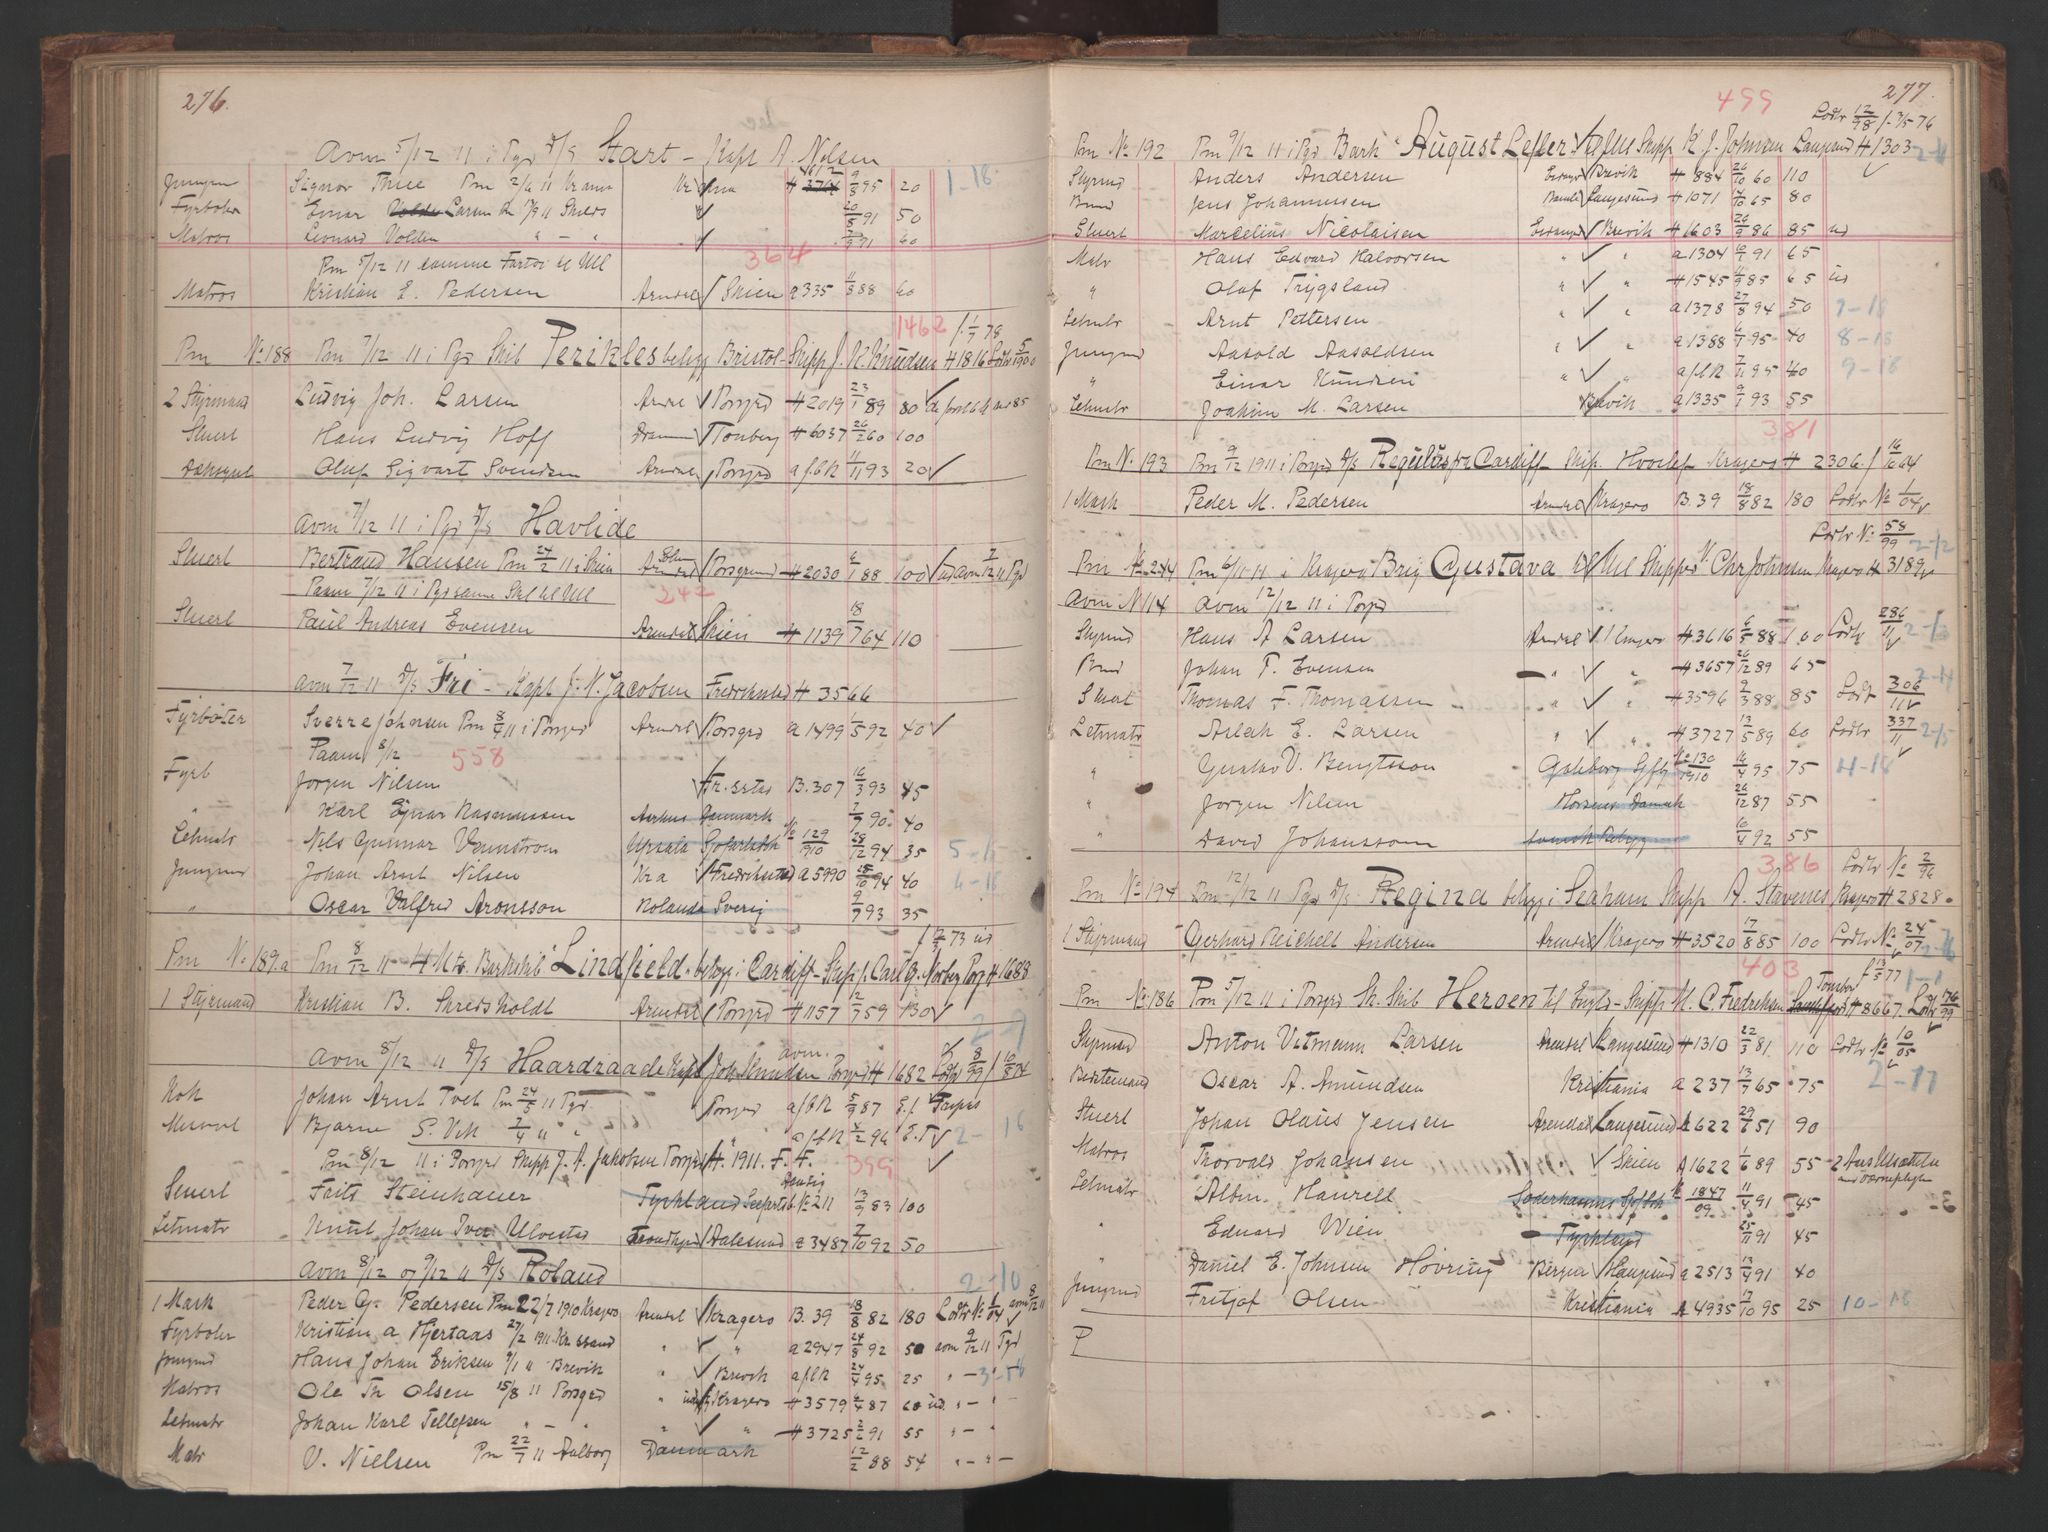 276.
Avm 5/12 11 i Pgr D/S Start - Kapt A. Nilsen
Jungm Signor Pm 2/6 11 16 12 9/8 95 20 1-18
Fyrbøter Einar Larsen Pm 11 Skiens 20/5 91 50
Matros Leonard Volden " - " 7/9 91 60
Pm 5/12 11 samme Fartøi til Udl 364
Matros Kristian E. Pedersen Arendal Skien a 335 11/8 88 60
1462 f. 1/7 78
Pm No 188 Pm 7/12 11 i Pgr Skib Perikles behgg Bristol - Skipp J. K. Knudsen H 1816 Lodtr 5/1900
2 Styrmand Ludvig Joh. Larsen Arendl Porsgrd H 2019 23/1 89 80
Stuert Hans Ludvig Hoff Drammen Tønberg H 6037 26/2 60 100
Dæksgut Oluf Sigvart Svendsen Arendal Porsgrd a f b R 11/11 93 20
Avm 7/12 11 i Pgr D/S Havlide
Stuert Bertrand Hansen Pm 24/2 11 i Skien Arendal Porsgrund H 2030 6/1 88 100 ud avm 7/12 11 Pgr
Paam 7/12 11 i Pgr samme Skib til Udl 242
Stuert Paul Andreas Evensen Arendal Skien H 1139 18/7 64 110
Avm 7/12 11 D/S Fri - Kapt J. N. Jacobsen Fredrikstad H 3566
Fyrbøter Sverre Johnsen Pm 8/9 11 i Porsgrd Arendal Porsgrd a 1499 1/5 92 40
Paam 8/12 558
Fyrb Jørgen Nilsen Fr.stad B. 307 16/3 93 45
" Karl Ejnar Rasmussen Aarhus Danmark 7/7 90 40
Letmatr Nils Gunnar Vennstrom Upsala No 129/1910 29/12 94 35 5-18
Jungmd Johan Arnt Nilsen Kr a Fredrikstad a 5990 25/10 94 40 6-18
" Oscar Valfred Aronsson Rolanda Sverig 9/7 93 35
f 12/3 73 ud
Pm No 189.a Pm 8/12 11 - H. Mts. Barkskib "Lindfield" behgg i Cardiff - Skipp. Carl G. Norberg Porsg H 1688
1 Styrmand Kristian B. Skredsholdt Arendal Porsgrd H 1157 12/7 59 130
2-9
Avm 8/12 11 D/S Haardraade Kapt Joh Knudsen Porsgrd H 1682 Lodtr 8/99 f 10/8 74
Kok Johan Arnt Tvet Pm 24/5 11 Pgr Porsgrd a f b R 5/9 87 E.f.
Messeret Bjarne S. Vik 7/4 11 " " a f b R 4/2 96 E.T 2-16
Pm 8/12 11 i Porsgrd Skipp J. A. Jakobsen Porsgrd H. 1911. F. F. 399
Stuert Frits Steinhauer Tyskland Seefartsb. No 211 13/9 83 100
Letmatr Knut Johan Iver Ulvestad Trondhjem Aalesund a 3487 7/10 92 50
Avm 8/12 og 9/12 11 D/S Roland 2-10
1 Mask Peder G. Pedersen Pm 22/7 1910 Kragerø Arendal Kragerø B. 39 18/8 82 180 Lodtr No 1/04 avm 8/12 11
Fyrbøter Kristian A Hjertaas 27/2 1911 Kr ssand " " a 2947 24/8 92 50 avm 9/12 11 Pgr
Jungmd Hans Johan Eriksen 9/1 11 Brevik " Brevik a f b R 24/4 95 25 " - 3-18
Matros Ole Th Olsen 15/8 11 Porsgrd " Kragerø H 3579 6/4 87 60 ud " - "
Letmatr Johan Karl Tellefsen " - " " " H 3725 2/2 91 55 " - "
Matr V. Nielsen Pm 22/7 11 Aalborg Danmark 12/2 88 54 " - " -
277.
499 Lodtr 12/98 f. 3/5 76
Pm No 192 Pm 9/12 11 i Pgr Bark "August Leffler" Skipp K. J. Johnsen Langesund H 1303 2-11
Styrmd Anders Andersen Eidanger Brevik H 884 26/10 60 110
Bmd Jens Johannessen Bamle Langesund H 1071 14/10 65 80
Stuert Marcelius Nicolaisen Eidanger Brevik H 1603 26/9 86 85 ud
Matr Hans Edvard Halvorsen " " a 1304 6/9 91 65
" Olaf Trygsland " " H 1545 11/9 85 65 ud
Letmatr Arnt Pettersen " " a 1378 27/8 94 50 7-18
Jungmd Aasold Aasoldsen " " a 1388 6/9 95 40 8-18
" Einar Knudsen " " a f b R 7/11 95 40 9-18
Letmatr Joakim M. Larsen Brevik a 1335 9/1 93 55
381
Pm No. 193 Pm 9/12 1911 i Porsgrd D/S Regulus fra Cardiff Skip. Kragerø H 2306. f 16/10 64
1 Mask Peder M. Pedersen Arendal Kragerø B. 39 18/8 82 180 Lodtr No 1/04
Lodtr No 58/99 2-12
Pm No 244 Pm 6/11 11 i Kragerø Brig Gustava til Udl Skipper Chr Johnsen Kragerø H 3189
Avm N 114 Avm 12/12 11 i Porsgrd
Styrmd Hans A Larsen Arendal Kragerø H 3616 6/5 88 100 Lodtr 286/11 2-13
Bmd Johan T. Evensen " " H 3657 26/12 89 65
Stuert Thomas F. Thomassen " " H 3596 9/3 88 85 Lodtr 306/11 2-14
Letmatr Aslak E. Larsen " " H 3727 13/5 89 60 Lodtr 337/11 2-15
" Gustav V. Bengtsson Gøteborg No 130/1910 16/4 95 75 4-18
" Jørgen Nilsen Horsens Danmk 26/12 87 55
" David Johansson 10/4 92 55
386 Lodtr No 2/96
Pm No 194 Pm 12/12 11 Pgr D/S Regina behgg i Seaham Skipp A. Stavenes Kragerø H 2828.
1 Styrmand Gerhard Reichelt Andersen Arendal Kragerø H 3520 17/8 85 100 Lodtr No 24/07
403 f 13/5 77 1-1
Pm No 186 Pm 5/12 11 i Porsgrd Sk. Skib Hersen til Engld - Skipp M. C. Fredriksen H 8667. Lodtr 76/99
Styrmand Anton Vitmann Larsen Arendal Langesund H 1310 22/3 81 110 Lodtr No 10/05
Bestemand Oscar A. Amundsen Kristiania a 237 13/7 65 75 2-17
Stuert Johan Olaus Jensen Arendal Langesund A 622 29/6 51 90
Matros Thorvald Johansen Skien A 1622 1/6 89 55 2 Aars Udsættelse
Letmatr Albin Hanrell Soderhamns No 1847/09 11/4 91 45
" Eduard Wien Tyskland 25/11 91 45
" Daniel E. Johnsen Høvring Bergen Haugesund a 2513 13/4 91 40
Jungmd Fritjof Olsen Kristiania A 4935 17/10 95 25 10-18
P